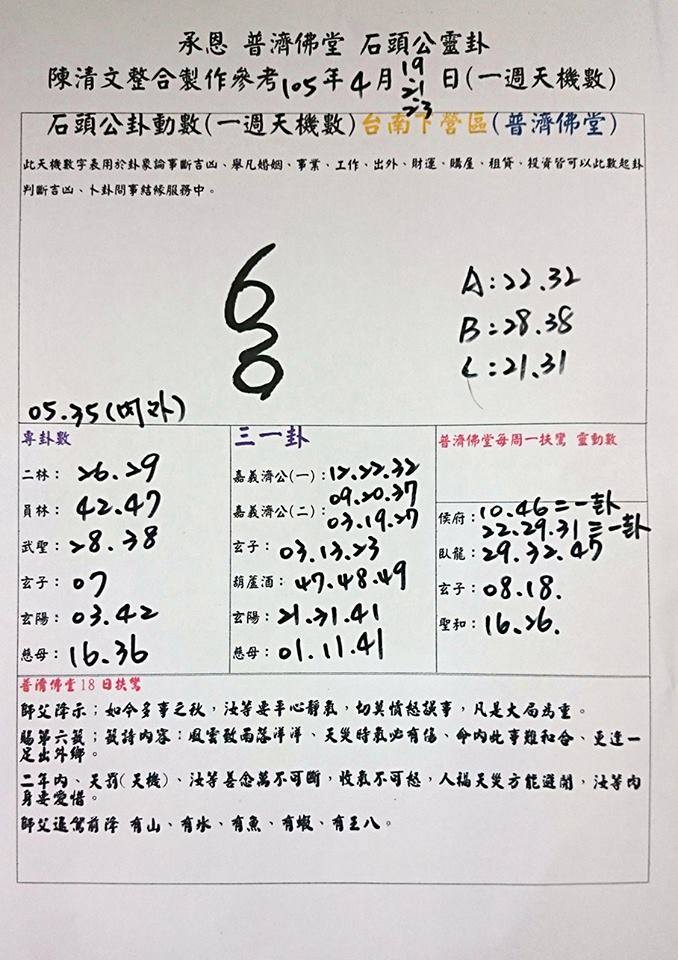 承恩 普濟佛堂 石頭公靈卦
陳清文整合製作參考105年4月19 21 23日(一週天機數)
石頭公卦動數(一週天機數)台南下營區(普濟佛堂)
此天機數字表用於卦象論事斷吉凶、舉凡婚姻、事業、工作、出外、財運、購屋、租賃、投資皆可以此數起卦
判斷吉凶、卜卦問事結緣服務中。
A:22.32
B:28.38
C:21.31
05.35
專卦數
二林: 26.29
員林: 42.47
武聖: 28.38
玄子: 07
玄陽: 03.42
慈母: 16.36
三一卦
嘉義濟公(一):12.22.32
09.20.37
嘉義濟公(二):03.19.27
玄子: 03.13.23
葫蘆酒: 47.48.49
玄陽: 21.31.41
慈母: 01.11.41
普濟佛堂每周一扶鸞 靈動數
侯府: 10.46=一卦
22.29.31=一卦
臥龍: 29.32.47
玄子: 08.18.
聖和: 16.26.
普濟佛堂18日扶鸞
師父降示;如今多事之秋,汝等要平心靜氣,切莫憤怒誤事,凡是大局為重。
賜第六籤;籤詩內容:風雲致雨落洋洋、天災時氣必有傷、命內此事難和合、更逢一
足出外鄉。
二年內、天罰(天機)、汝等善念萬不可斷,收氣不可怒,人禍天災方能避開,汝等肉
身要愛惜。
師父退駕前降 有山、有水、有魚、有蝦、有王八。